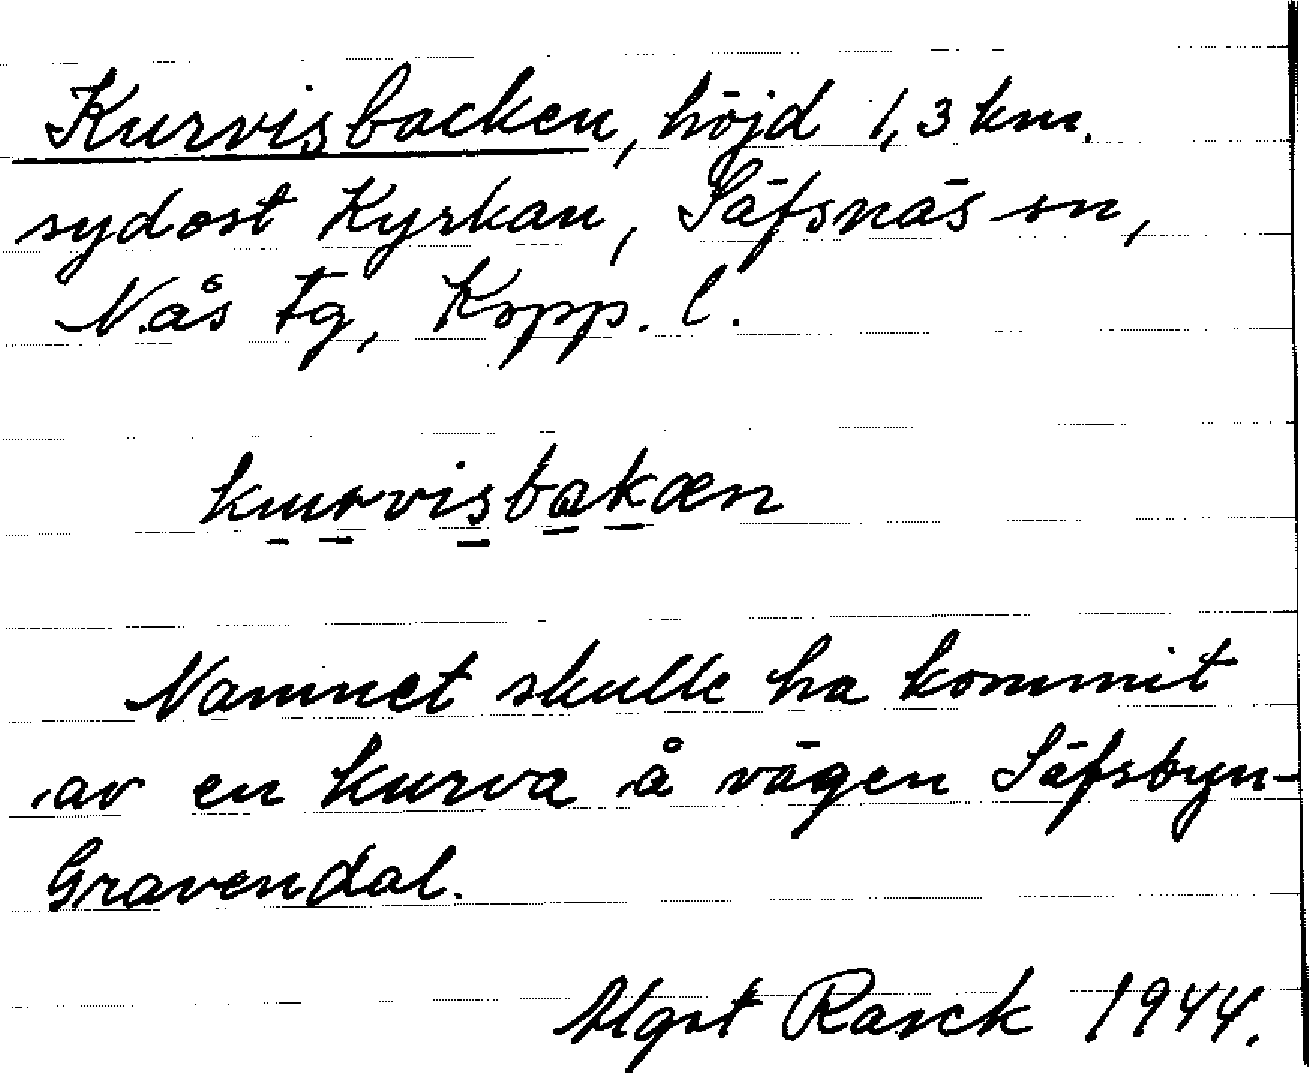 Kurvisbacken, höjd 1,3 km.
sydost Kyrkan, Säfsnäs sn,
Nås tg, Kopp. l.
kurvisbakæn
Namnet skulle ha kommit
av en kurva å vägen Säfsbyn-
Gravendal.
Algot Rasck 1944.